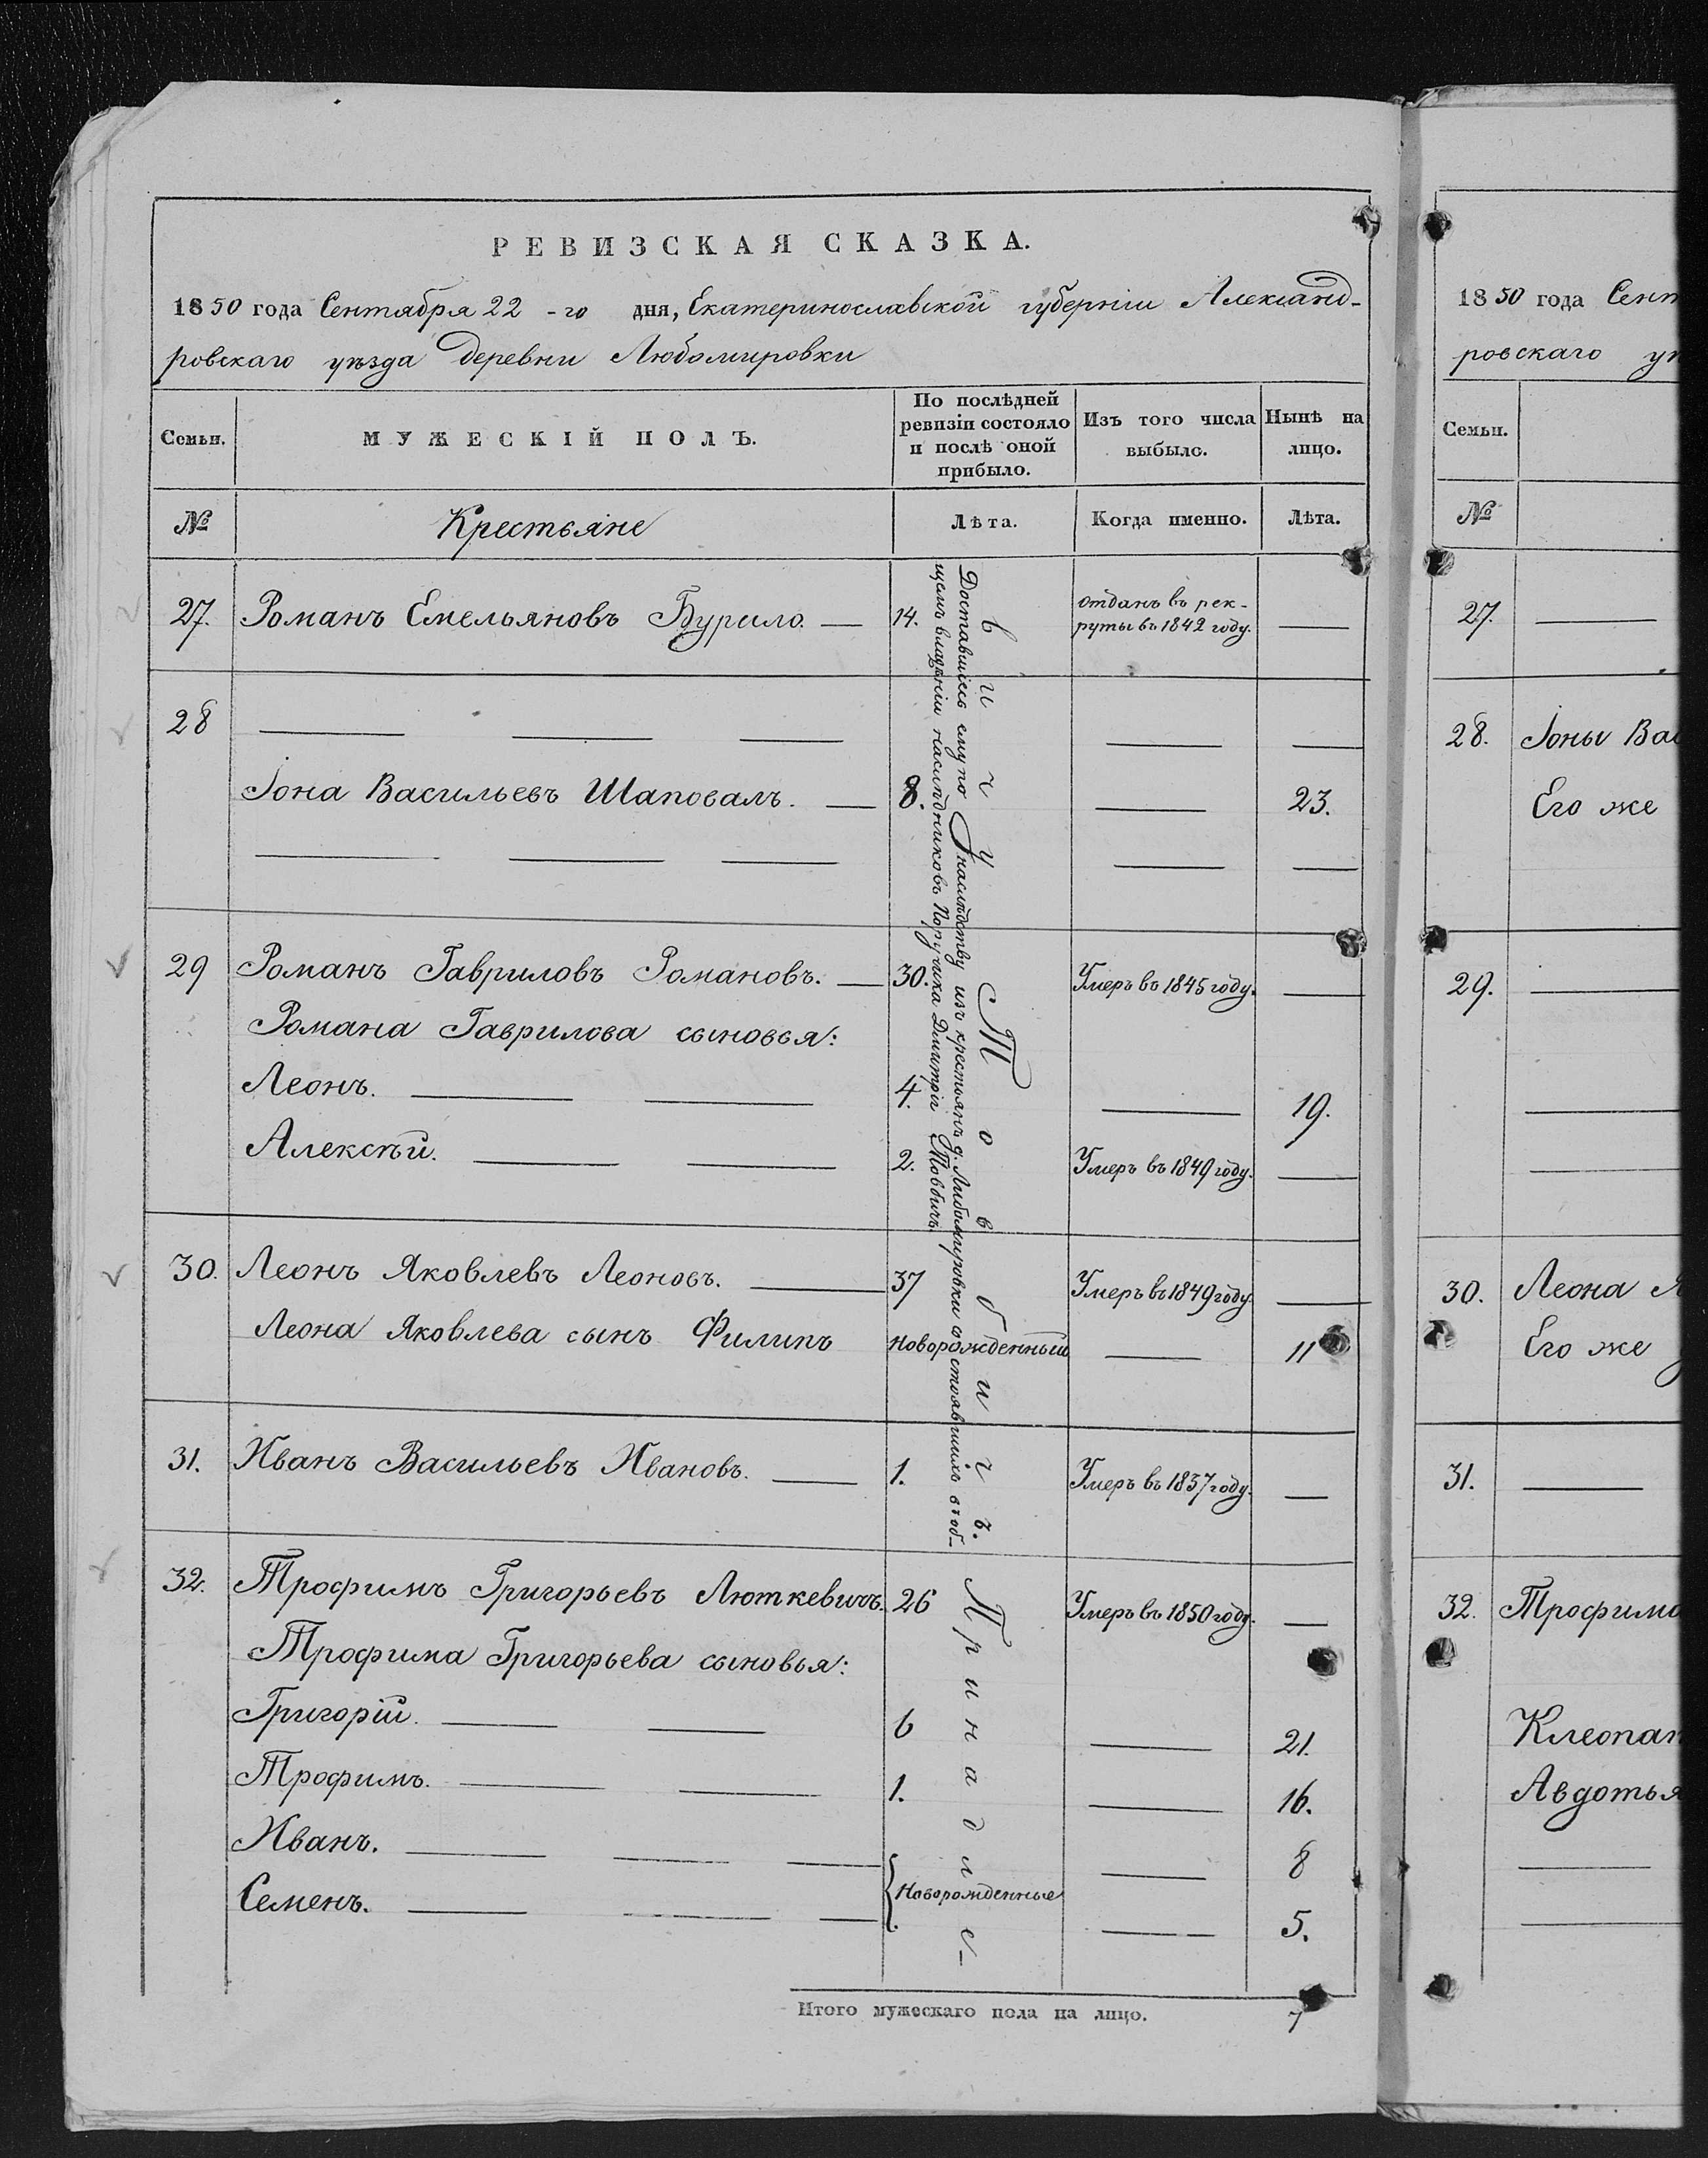 РЕВИЗСКАЯ СКАЗКА.
1850 года Сентября 22-го дня, Екатеринославской губерніи Александ-
ровскаго уѣзда деревни Любомировки
Семьи.
МУЖЕСКІЙ ПОЛЪ.
По послѣдней
ревизіи состояло
и послѣ оной
прибыло.
Изъ того числа
выбыло.
Нынѣ на
лицо.
№
Крестьяне
Лѣта.
Когда именно.
Лѣта.
27. Романъ Емельяновъ Бурило. — 14.
отданъ въ рек-
руты въ 1842 году. —
28 — — — — —
Іона Васильевъ Шаповалъ. — 8. — 23.
— — — — —
29 Романъ Гавриловъ Романовъ. — 30. Умеръ въ 1845 году. —
Романа Гаврилова сыновья:
Леонъ. — — 4. — 19.
Алексѣй. — — 2. Умеръ въ 1849 году. —
30. Леонъ Яковлевъ Леоновъ. — 37 Умеръ въ 1849 году —
Леона Яковлева сынъ Филипъ новорожденный — 11
31. Иванъ Васильевъ Ивановъ. — 1. Умеръ въ 1837 году. —
32. Трофимъ Григорьевъ Люткевичъ. 26 Умеръ въ 1850 году. —
Трофима Григорьева сыновья:
Григорій. — — 6 — 21.
Трофимъ. — — 1. — 16.
Иванъ. — — — — 8
Новорожденные
Семенъ. — — — — 5.
Итого мужескаго пола на лицо. 7
Принадле-
вичу Товбичъ.
Доставшіеся ему по наслѣдству изъ крестьянъ д. Любомировки состоявшихъ въ об-
щемъ владѣніи наслѣдниковъ Поручика Дмитрія Товбичъ.
1850 года Сент
ровскаго уѣ
Семьи.
№
27. —
28. Іоны Вас
Его же
29. —
—
—
30. Леона Я
Его же
31. —
32. Трофима
Клеопат
Авдотья
—
—